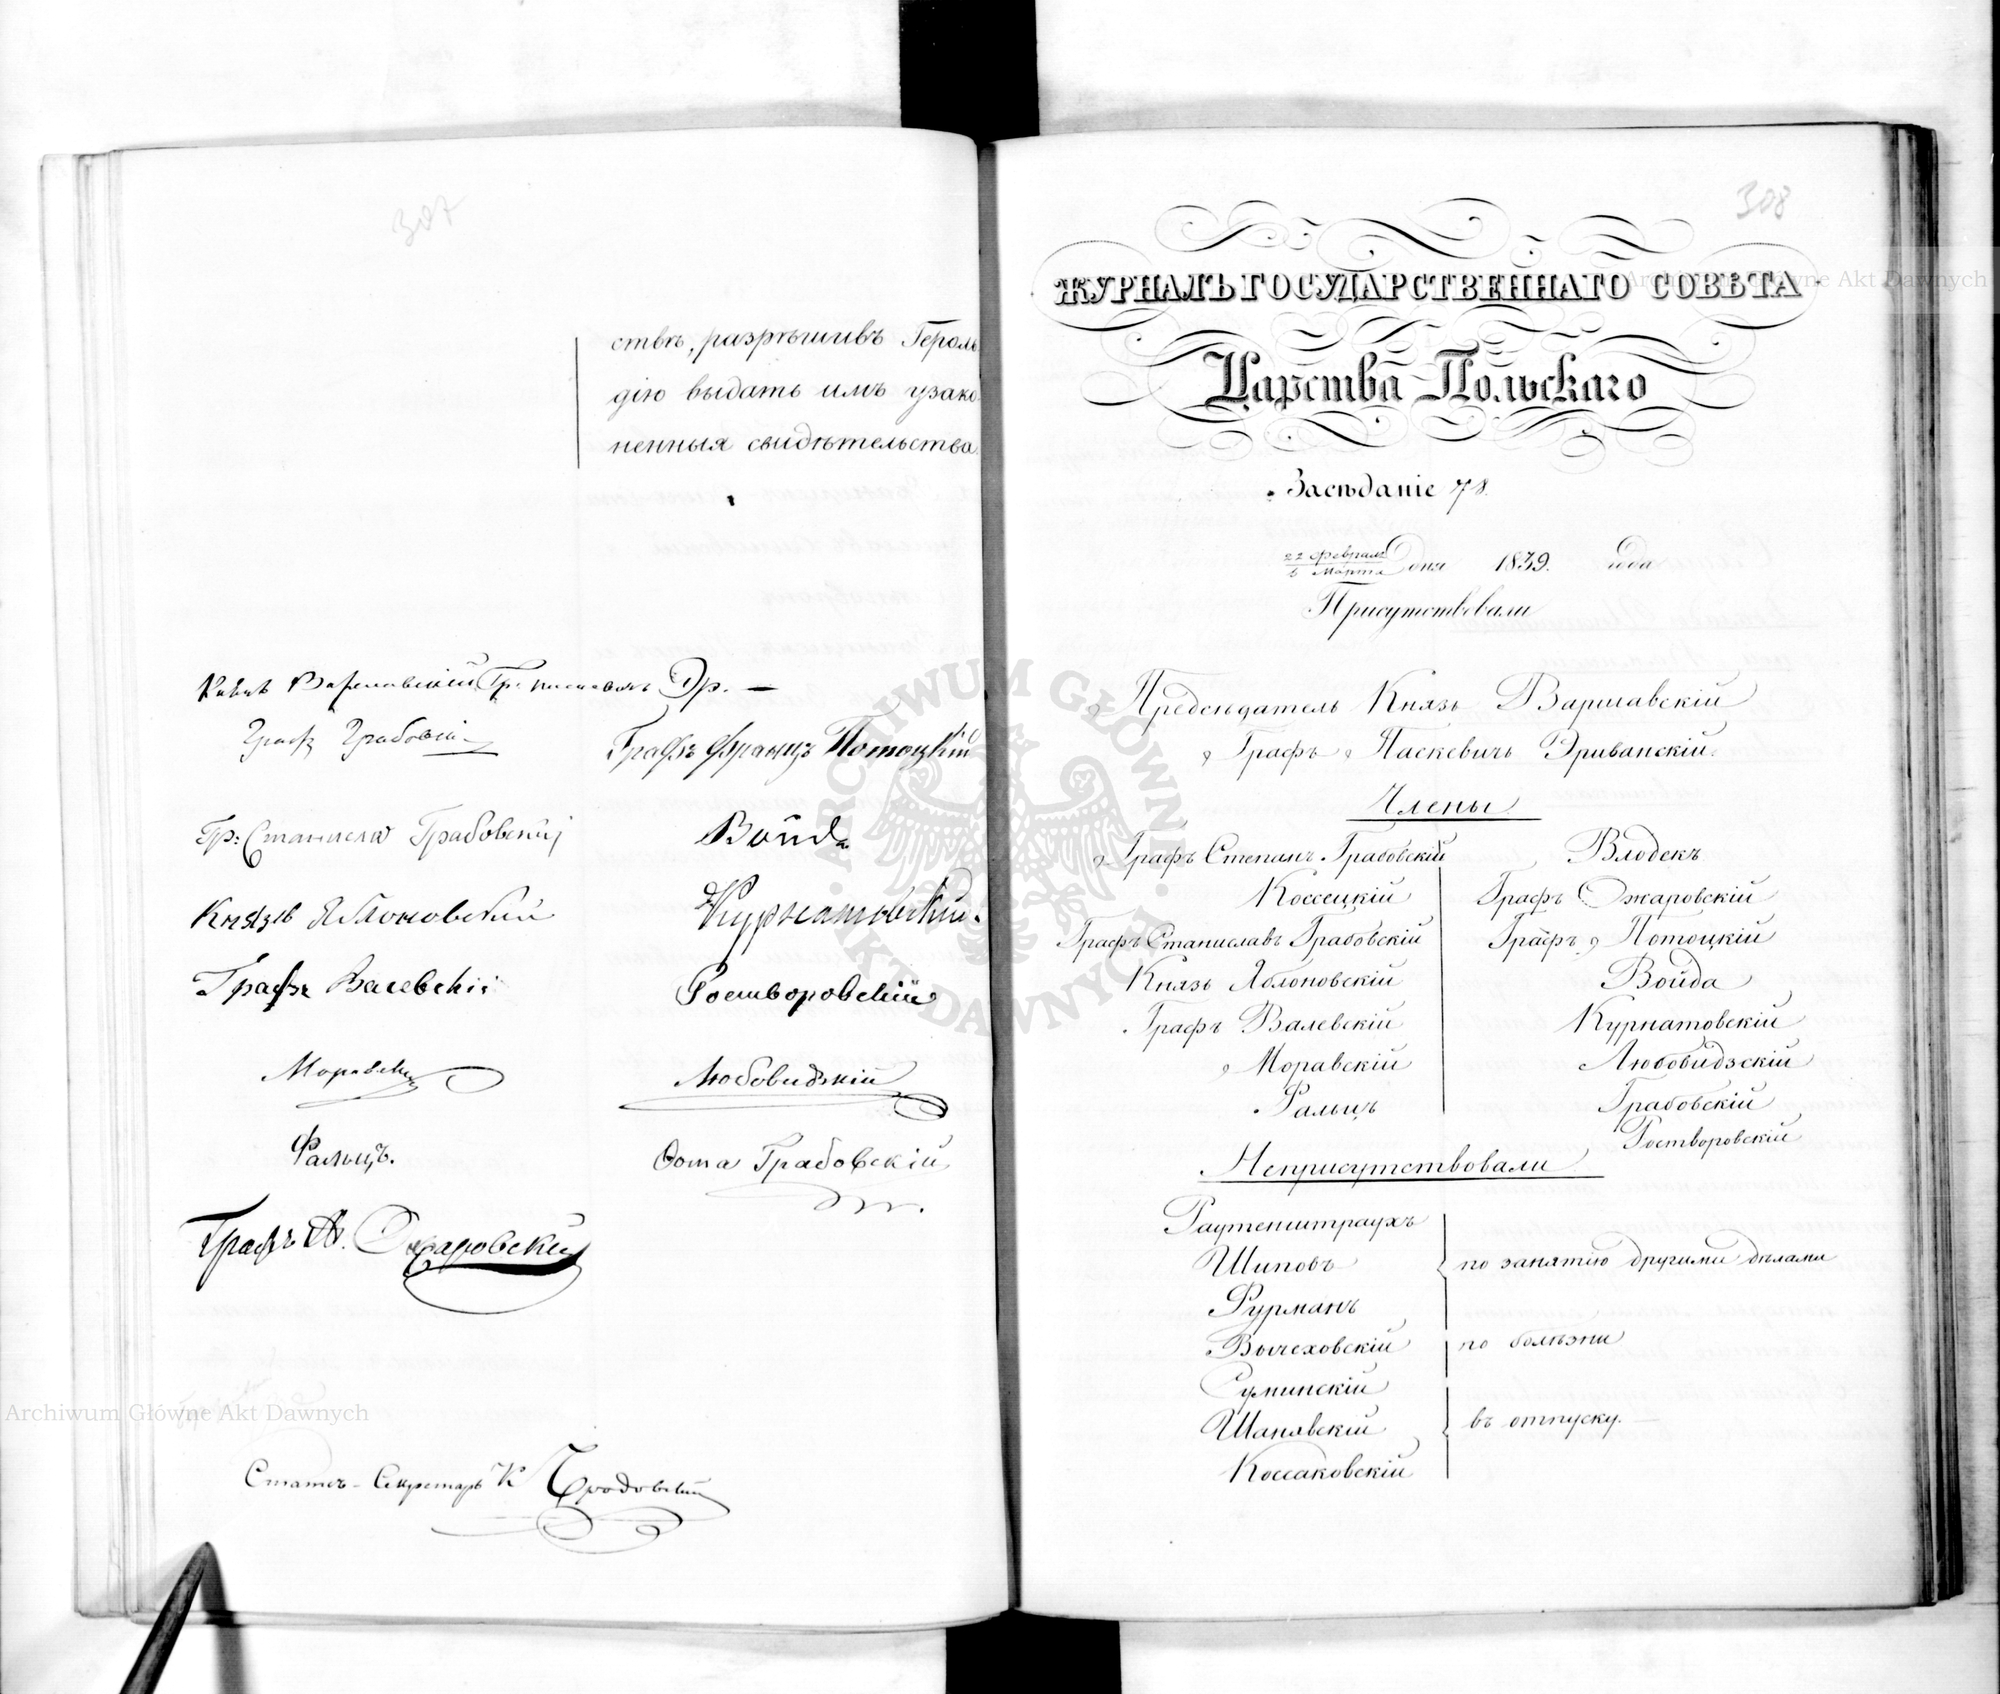 307
ствѣ, разрѣшивъ Героль
дію выдать имъ узако
ненныя свидѣтельства.
Князь Варшавскій Гр. Паскевичъ Эр. —
Графъ Грабовскій
Графъ Францъ Потоцкій
Гр: Станиславъ Грабовскій
Войда
Князь Яблоновскій
Курнатовскій
Графъ Валевскій
Ростворовскій
Моравскій
Любовидзкій
Фальцъ.
Ѳома Грабовскій
Графъ А. Ожаровскій
Archiwum Główne Akt Dawnych
Статсъ-Секретарь К Бродовскій
308
ЖУРНАЛЪ ГОСУДАРСТВЕННАГО СОВѢТА
Archiwum Główne Akt Dawnych
Царства Польскаго
Засѣданіе 78.
22 Февраля
6 Марта дня 1839. года
Присутствовали
Предсѣдатель Князь Варшавскій
Графъ Паскевичъ Эриванскій.
Члены
Графъ Степанъ Грабовскій
Влодекъ
Коссецкій
Графъ Ожаровскій
Графъ Станиславъ Грабовскій
Графъ Потоцкій
Князь Яблоновскій
Войда
Графъ Валевскій
Курнатовскій
Моравскій
Любовидзскій
Фальцъ
Грабовскій
Ростворовскій
Неприсутствовали
Раутенштраухъ
Шиповъ
по занятію другими дѣлами
Фурманъ
Вычеховскій
по болѣзни
Суминскій
Шанявскій
въ отпуску.
Коссаковскій
ARCHIWUM GŁÓWNE AKT DAWNYCH